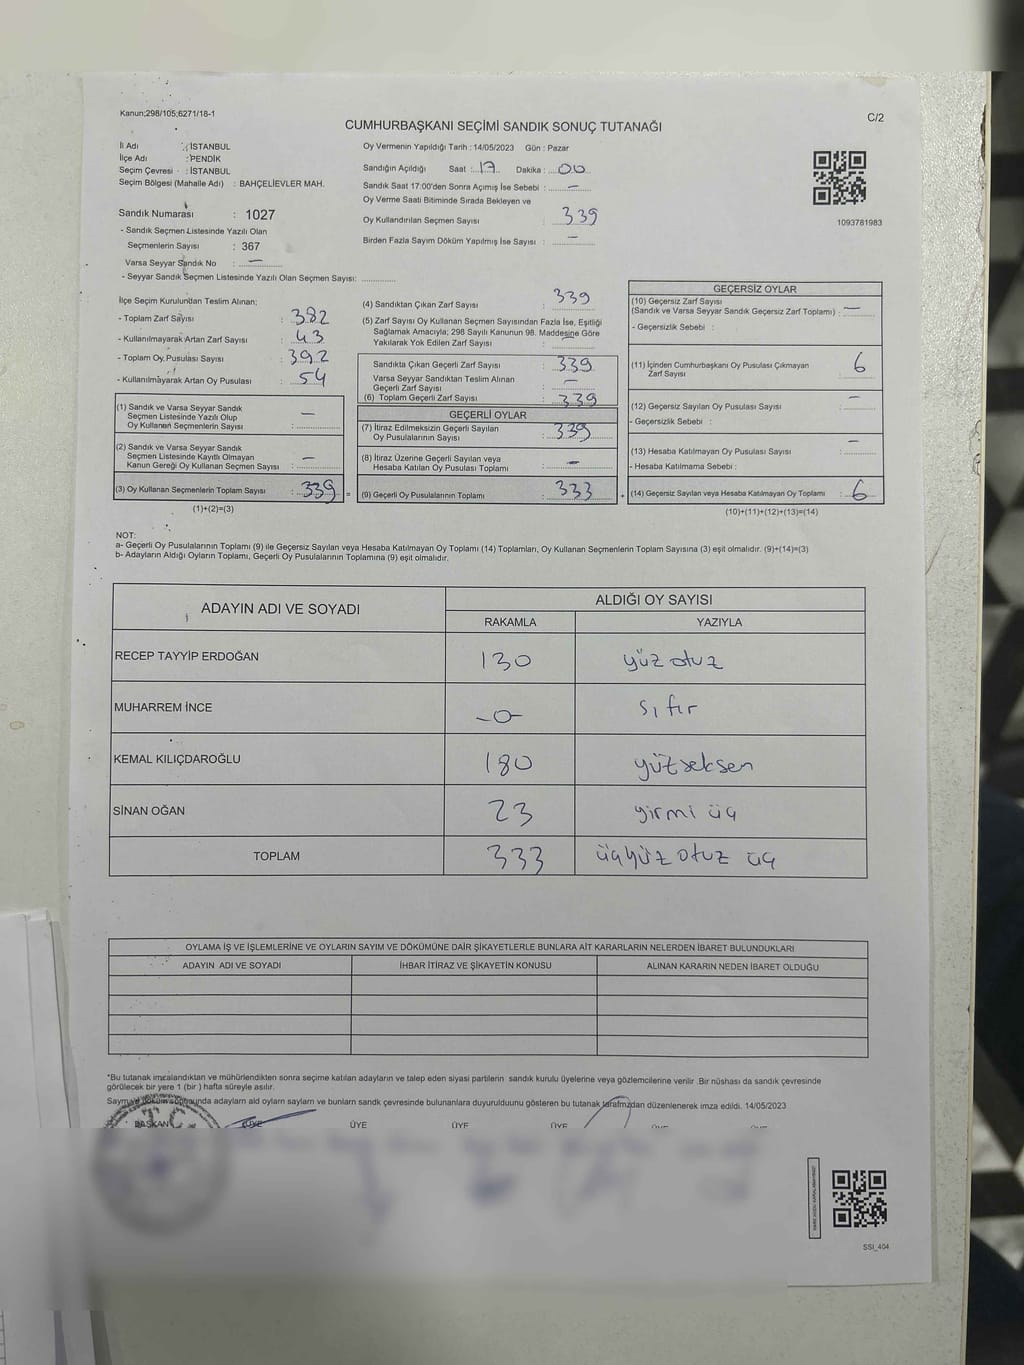 Kanun;298/105;6271/18-1
C/2
CUMHURBAŞKANI SEÇİMİ SANDIK SONUÇ TUTANAĞI
İl Adı : İSTANBUL
İlçe Adı : PENDİK
Seçim Çevresi : İSTANBUL
Seçim Bölgesi (Mahalle Adı) : BAHÇELİEVLER MAH.
Sandık Numarası : 1027
- Sandık Seçmen Listesinde Yazılı Olan
Seçmenlerin Sayısı : 367
Varsa Seyyar Sandık No : —
- Seyyar Sandık Seçmen Listesinde Yazılı Olan Seçmen Sayısı: ............
Oy Vermenin Yapıldığı Tarih : 14/05/2023 Gün : Pazar
Sandığın Açıldığı Saat : 17 Dakika : 00
Sandık Saat 17:00'den Sonra Açımış İse Sebebi : —
Oy Verme Saati Bitiminde Sırada Bekleyen ve
Oy Kullandırılan Seçmen Sayısı : 339
Birden Fazla Sayım Döküm Yapılmış İse Sayısı : —
1093781983
İlçe Seçim Kurulundan Teslim Alınan;
- Toplam Zarf Sayısı : 382
- Kullanılmayarak Artan Zarf Sayısı : 43
- Toplam Oy Pusulası Sayısı : 392
- Kullanılmayarak Artan Oy Pusulası : 54
(1) Sandık ve Varsa Seyyar Sandık
Seçmen Listesinde Yazılı Olup
Oy Kullanan Seçmenlerin Sayısı : —
(2) Sandık ve Varsa Seyyar Sandık
Seçmen Listesinde Kayıtlı Olmayan
Kanun Gereği Oy Kullanan Seçmen Sayısı : —
(3) Oy Kullanan Seçmenlerin Toplam Sayısı : 339 =
(1)+(2)=(3)
(4) Sandıktan Çıkan Zarf Sayısı : 339
(5) Zarf Sayısı Oy Kullanan Seçmen Sayısından Fazla İse, Eşitliği
Sağlamak Amacıyla; 298 Sayılı Kanunun 98. Maddesine Göre
Yakılarak Yok Edilen Zarf Sayısı : —
Sandıkta Çıkan Geçerli Zarf Sayısı : 339
Varsa Seyyar Sandıktan Teslim Alınan
Geçerli Zarf Sayısı : —
(6) Toplam Geçerli Zarf Sayısı : 339
GEÇERLİ OYLAR
(7) İtiraz Edilmeksizin Geçerli Sayılan
Oy Pusulalarının Sayısı : 339
(8) İtiraz Üzerine Geçerli Sayılan veya
Hesaba Katılan Oy Pusulası Toplamı : —
(9) Geçerli Oy Pusulalarının Toplamı : 333 +
GEÇERSİZ OYLAR
(10) Geçersiz Zarf Sayısı
(Sandık ve Varsa Seyyar Sandık Geçersiz Zarf Toplamı) : —
- Geçersizlik Sebebi :
(11) İçinden Cumhurbaşkanı Oy Pusulası Çıkmayan
Zarf Sayısı : 6
(12) Geçersiz Sayılan Oy Pusulası Sayısı : —
- Geçersizlik Sebebi :
(13) Hesaba Katılmayan Oy Pusulası Sayısı : —
- Hesaba Katılmama Sebebi :
(14) Geçersiz Sayılan veya Hesaba Katılmayan Oy Toplamı : 6
(10)+(11)+(12)+(13)=(14)
NOT:
a- Geçerli Oy Pusulalarının Toplamı (9) ile Geçersiz Sayılan veya Hesaba Katılmayan Oy Toplamı (14) Toplamları, Oy Kullanan Seçmenlerin Toplam Sayısına (3) eşit olmalıdır. (9)+(14)=(3)
b- Adayların Aldığı Oyların Toplamı, Geçerli Oy Pusulalarının Toplamına (9) eşit olmalıdır.
ADAYIN ADI VE SOYADI ALDIĞI OY SAYISI
RAKAMLA YAZIYLA
RECEP TAYYİP ERDOĞAN 130 yüz otuz
MUHARREM İNCE -0- sıfır
KEMAL KILIÇDAROĞLU 180 yüzseksen
SİNAN OĞAN 23 yirmi üç
TOPLAM 333 üçyüz otuz üç
OYLAMA İŞ VE İŞLEMLERİNE VE OYLARIN SAYIM VE DÖKÜMÜNE DAİR ŞİKAYETLERLE BUNLARA AİT KARARLARIN NELERDEN İBARET BULUNDUKLARI
ADAYIN ADI VE SOYADI İHBAR İTİRAZ VE ŞİKAYETİN KONUSU ALINAN KARARIN NEDEN İBARET OLDUĞU
*Bu tutanak imzalandıktan ve mühürlendikten sonra seçime katılan adayların ve talep eden siyasi partilerin sandık kurulu üyelerine veya gözlemcilerine verilir .Bir nüshası da sandık çevresinde
görülecek bir yere 1 (bir ) hafta süreyle asılır.
adayların oyların bunların sandık çevresinde bulunanlara gösteren bu tutanak düzenlenerek imza edildi. 14/05/2023
BAŞKAN ÜYE ÜYE ÜYE ÜYE
T.C.
SSI_404